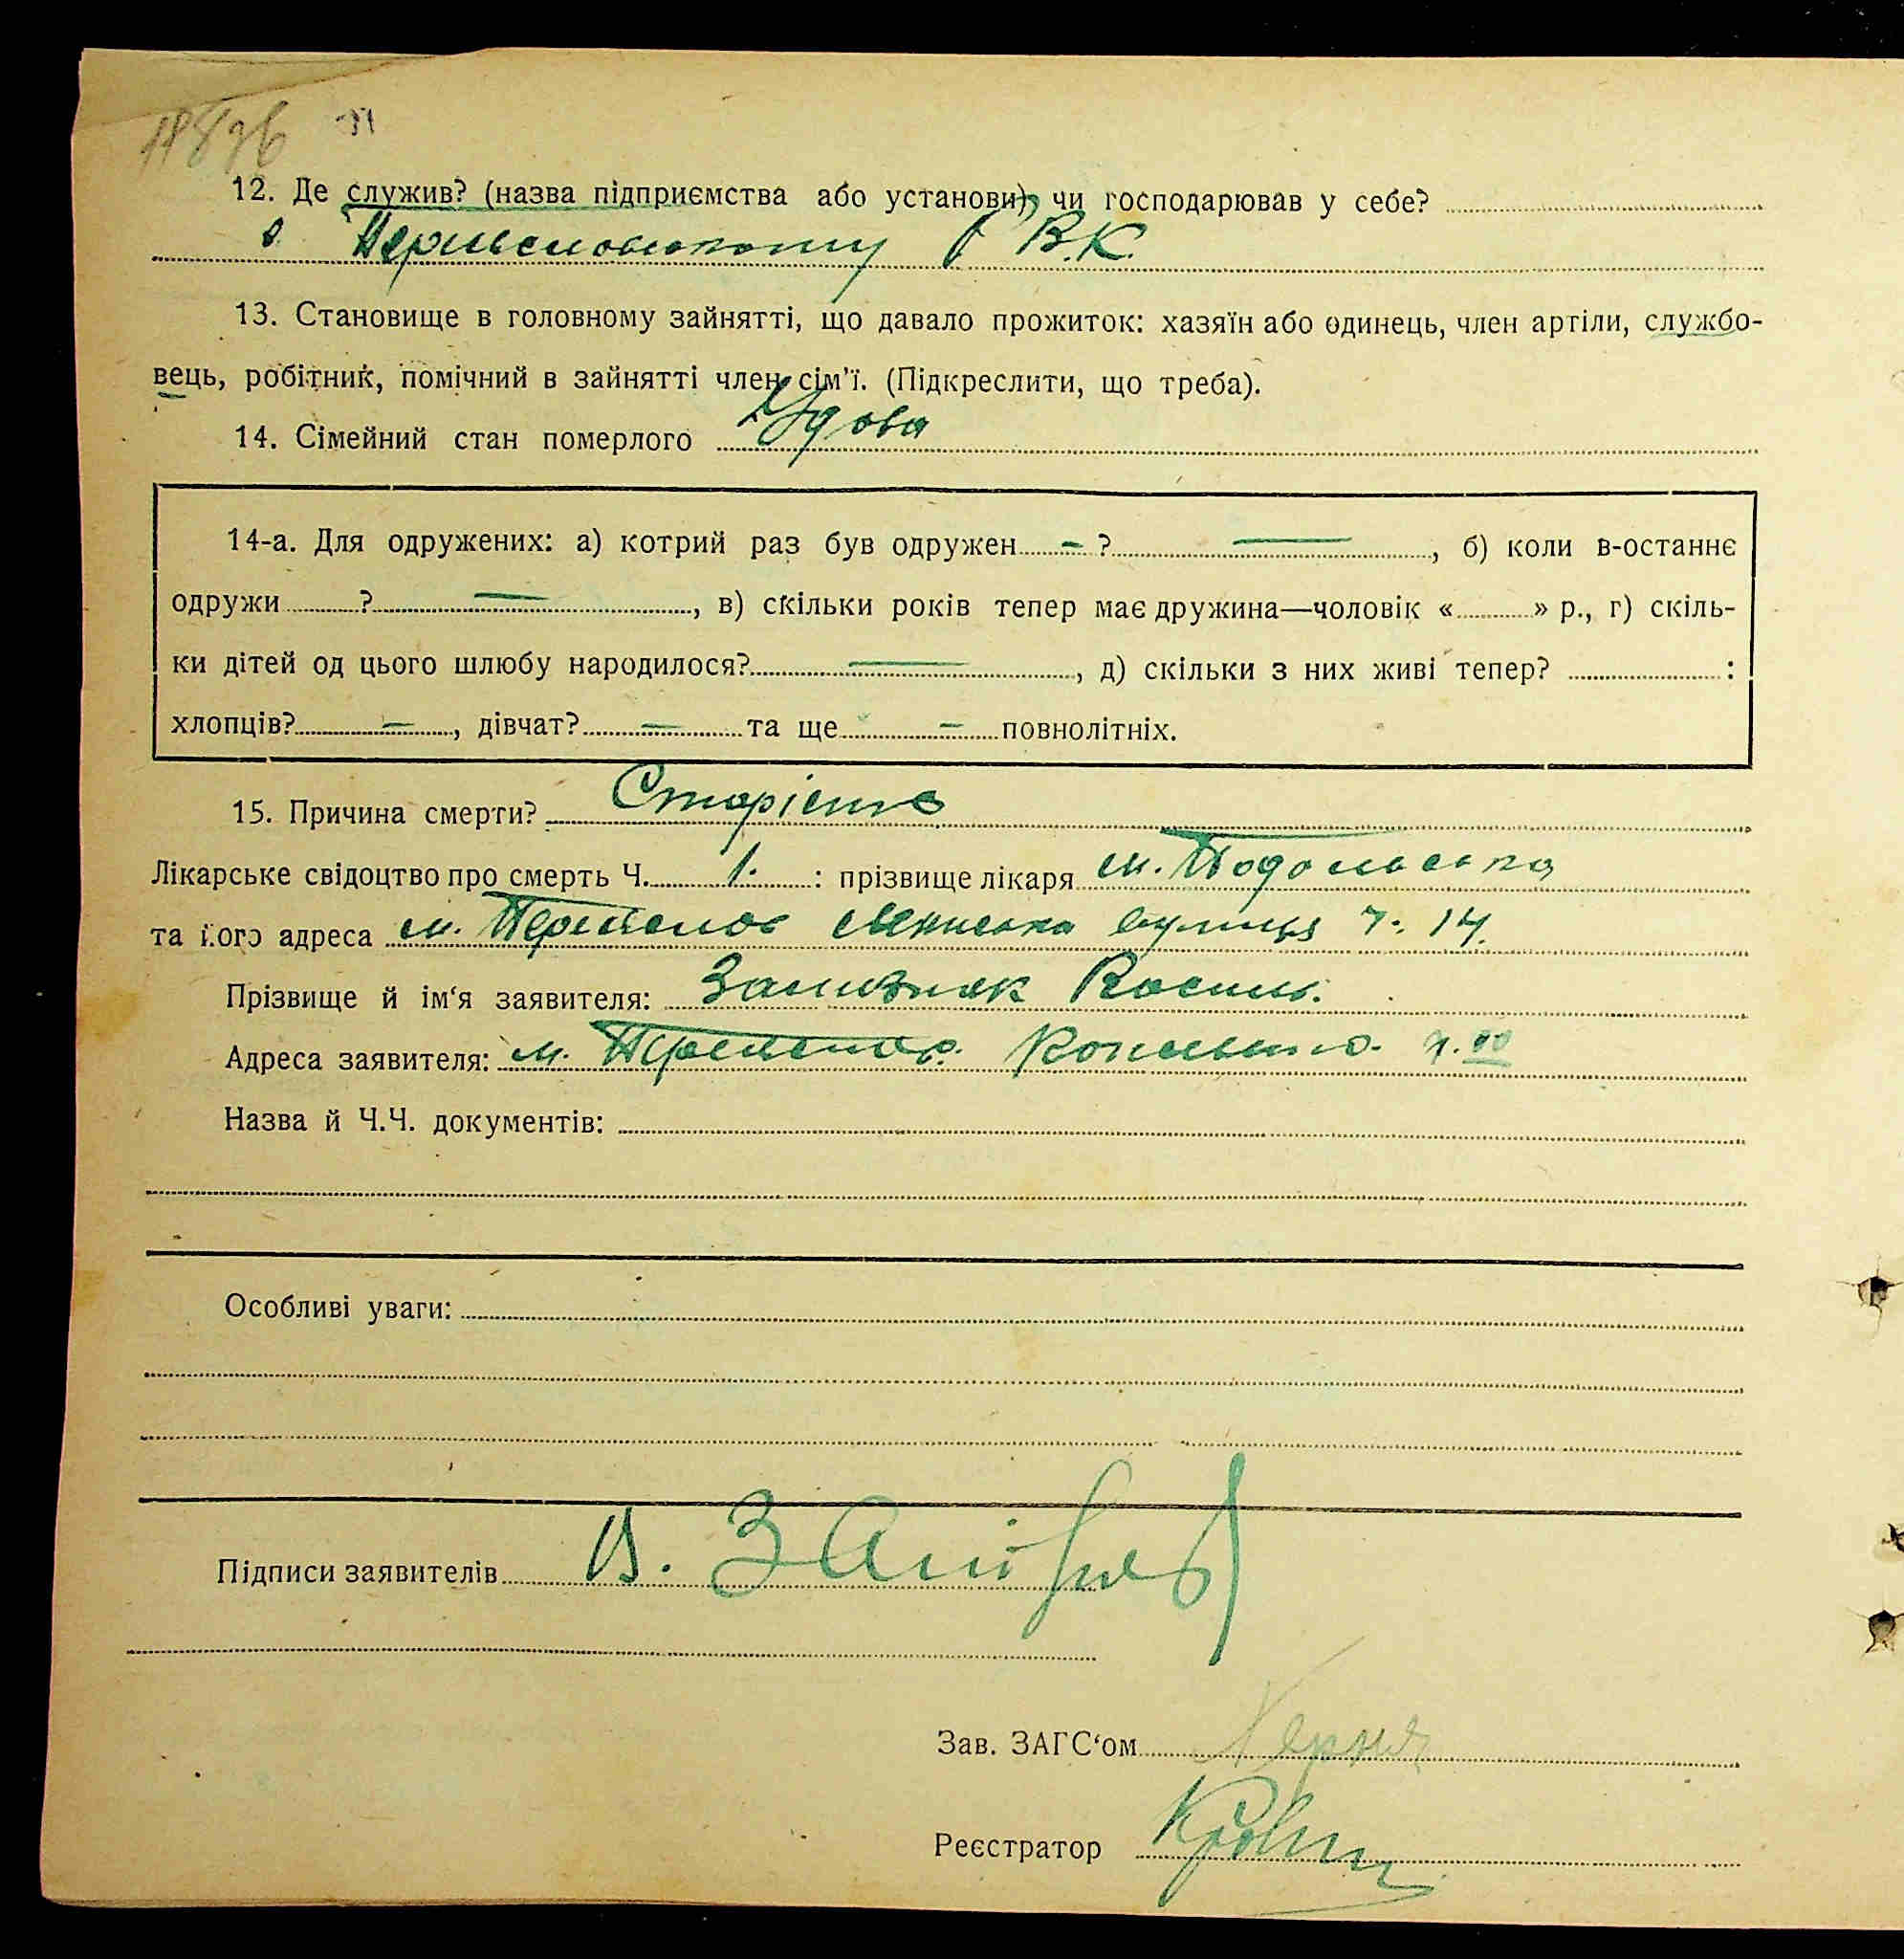 12. Де служив? (назва підприємства або установи), чи господарював у себе?
В.К.
13. Становище в головному зайнятті, що давало прожиток: хазяїн або одинець, член артіли, службо-
вець, робітник, помічний в зайнятті член сім'ї. (Підкреслити, що треба).
14. Сімейний стан померлого Удова
14-а. Для одружених: а) котрий раз був одружен - ? —, б) коли в-останнє
одружи ? —, в) скільки років тепер має дружина—чоловік « » р., г) скіль-
ки дітей од цього шлюбу народилося? —, д) скільки з них живі тепер? :
хлопців? —, дівчат? — та ще — повнолітніх.
15. Причина смерти? Старість
Лікарське свідоцтво про смерть Ч. 1. : прізвище лікаря м. Подольська
та його адреса м. вулиця ч. 14.
Прізвище й ім'я заявителя:
Адреса заявителя: м.
Назва й Ч.Ч. документів:
Особливі уваги:
Підписи заявителів
Зав. ЗАГС'ом
Реєстратор